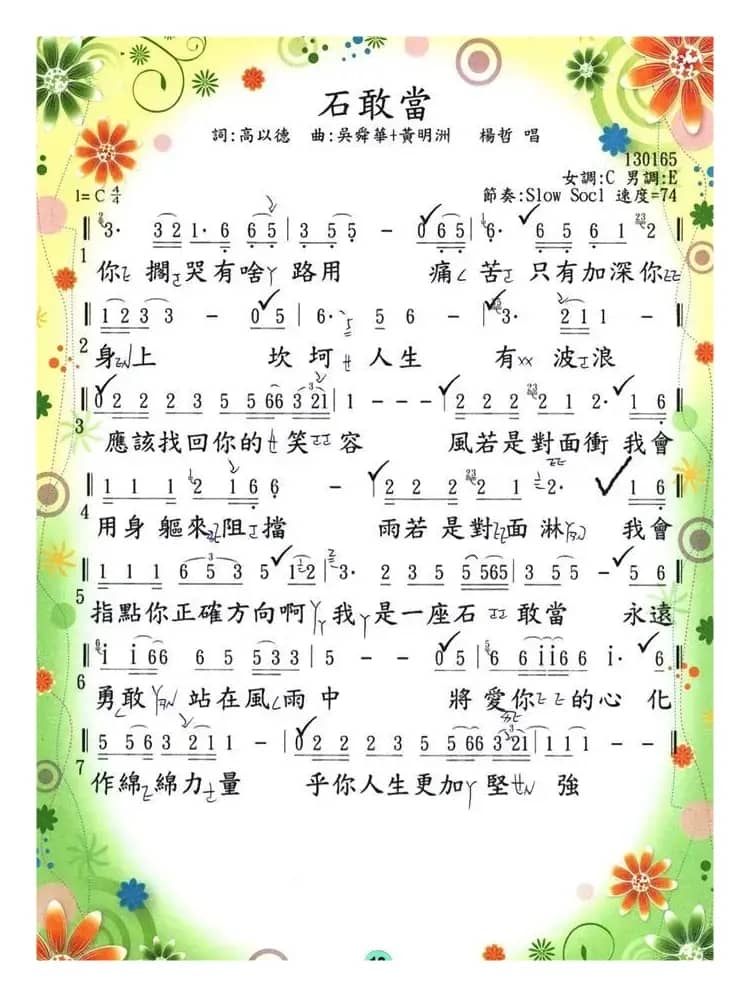 石敢當
詞:高以德 曲:吳舜華+黃明洲 楊哲 唱
130165
女調:C 男調:E
1= C 4/4
節奏:Slow Socl 速度=74
3· 3 2 1· 6 6 5 | 3 5 5 - 0 6 5 | 6· 6 5 6 1 2
1
你ㄛ 擱ㄛ哭有啥ㄚ 路用 痛ㄑ 苦ㄛ 只有加深你ㄛㄛ
1 2 3 3 - 0 5 | 6· 5 6 - 3· 2 1 -
2
身 上 坎 坷ㄝ 人生 有 波ㄛ浪
0 2 2 2 3 5 5 66 3 21 | 1 - - - 2 2 2 2 1 2· 1 6
3
應該找回你的ㄝ笑 容 風若是對面衝 我會
1 1 1 2 1 6 6 - 2 2 2 2 1 2· 1 6
4
用身 軀來 阻ㄛ擋 雨若 是對 面 淋 我會
1 1 1 6 5 3 5 1 2 | 3· 2 3 5 5 565 | 3 5 5 - 5 6
5
指點你正確方向啊ㄚㄚ我ㄚ是一座石 敢當 永遠
i i 66 6 5 5 33 | 5 - - 0 5 | 6 i i 66 i· 6
6
勇敢 站在風ㄑ雨 中 將 愛你ㄛㄛ的心 化
5 5 6 3 2 1 1 - | 0 2 2 2 3 5 5 66 3 21 | 1 1 1 - -
7
作綿ㄛ綿力ㄛ量 乎你人生更加ㄚ堅 強